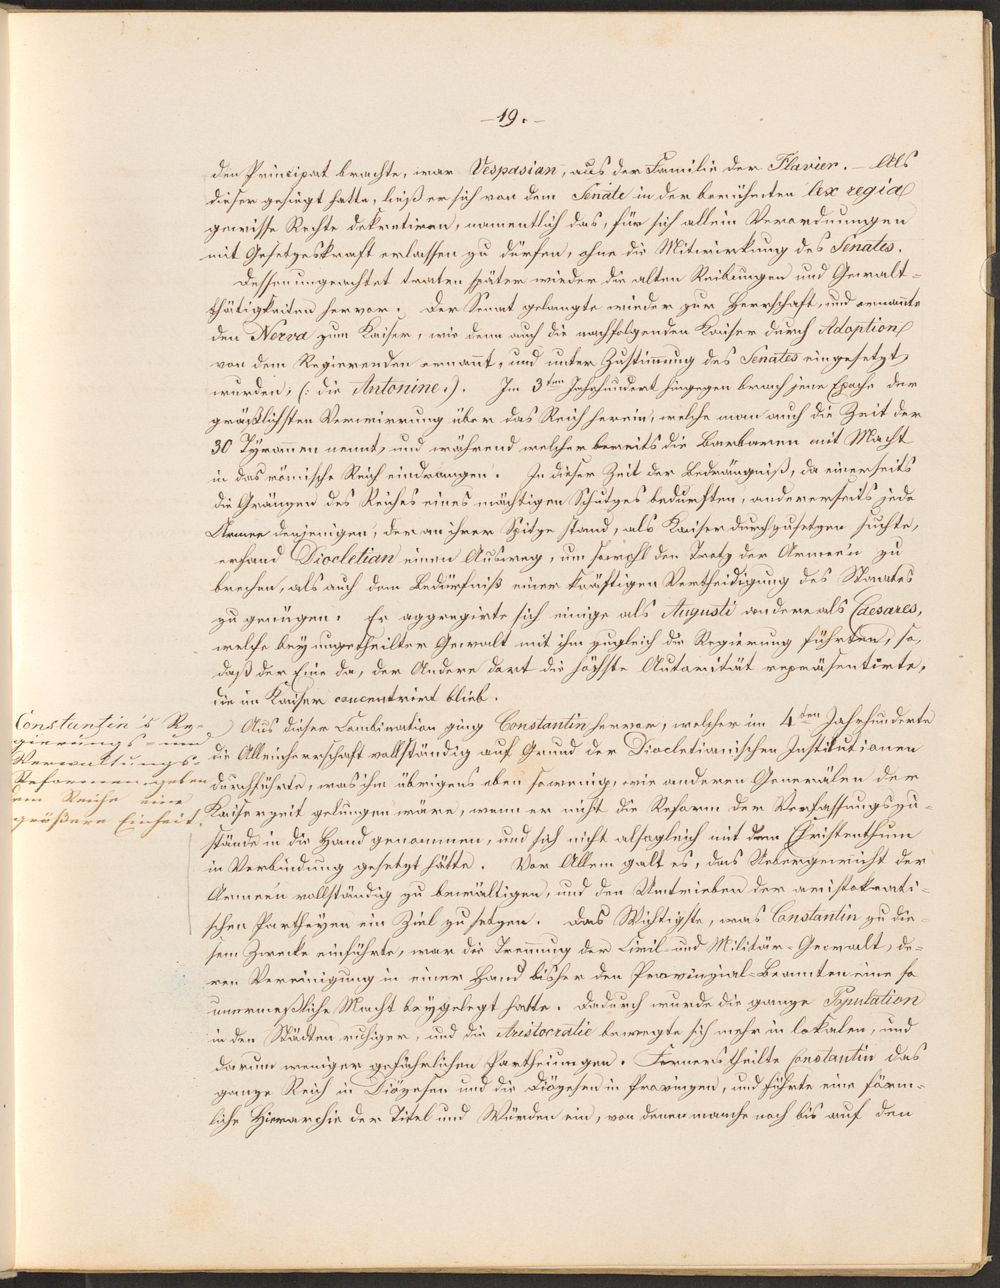 – 19. –
den Principat brachte, war Vespasian, aus der Familie der Flavier. – Als
dieser gesiegt hatte, ließ er sich von dem Senate in der berühmten lex regia
gewisse Rechte dekretiren, namentlich das, für sich allein Verordnungen
mit Gesetzeskraft erlassen zu dürfen, ohne die Mitwirkung des Senates.
Dessenungeachtet traten später wieder die alten Reibungen und Gewalt-
thätigkeiten hervor. Der Senat gelangte wieder zur Herrschaft, und ernannte
den Nerva zum Kaiser, wie denn auch die nachfolgenden Kaiser durch Adoption
von dem Regierenden ernannt, und unter Zustimmung des Senates eingesetzt
wurden, (: die Antonine :). Im 3ten Jahrhundert hingegen brach jene Epoche der
gräßlichsten Verwirrung über das Reich herein, welche man auch die Zeit der
30 Tyrannen nennt, und während welcher bereits die Barbaren mit Macht
in das römische Reich eindrangen. In dieser Zeit der Bedrängniß, da einerseits
die Gränzen des Reiches eines mächtigen Schutzes bedurften, andererseits jede
Armee denjenigen, der an ihrer Spitze stand, als Kaiser durchzusetzen suchte,
erfand Diocletian einen Ausweg, um sowohl den Trotz der Armeen zu
brechen, als auch dem Bedürfniß einer kräftigen Vertheidigung des Staates
zu genügen. Er aggregirte sich einige als Augusti andere als Caesares,
welche bey ungetheilter Gewalt mit ihm zugleich die Regierung führten, so,
daß der Eine da, der Andere dort die höchste Autorität repräsentirte,
die im Kaiser concentrirt blieb.
Constantin's Re-
gierungs- und
Verwaltungs-
Reformen geben
dem Reiche eine
größere Einheit.
Aus dieser Combination ging Constantin hervor, welcher im 4ten Jahrhunderte
die Alleinherrschaft vollständig auf Grund der Diocletianischen Institutionen
durchführte, was ihm übrigens eben so wenig, wie anderen Generälen der
Kaiserzeit gelungen wäre, wenn er nicht die Reform der Verfassungszu-
stände in die Hand genommen, und sich nicht alsogleich mit dem Christenthum
in Verbindung gesetzt hätte. Vor Allem galt es, das Uebergewicht der
Armeen vollständig zu bewältigen, und den Umtrieben der aristokrati-
schen Partheyen ein Ziel zu setzen. Das Wichtigste, was Constantin zu die-
sem Zwecke einführte, war die Trennung der Civil- und Militär-Gewalt, de-
ren Vereinigung in einer Hand bisher den Provinzial-Beamten eine so
unermeßliche Macht beygelegt hatte. Dadurch wurde die ganze Population
in den Städten ruhiger, und die Aristocratie bewegte sich mehr in lokalen, und
darum weniger gefährlichen Partheiungen. Ferners theilte Constantin das
ganze Reich in Diözesen und die Diözesen in Provinzen, und führte eine förm-
liche Hierarchie der Titel und Würden ein, von denen manche noch bis auf den